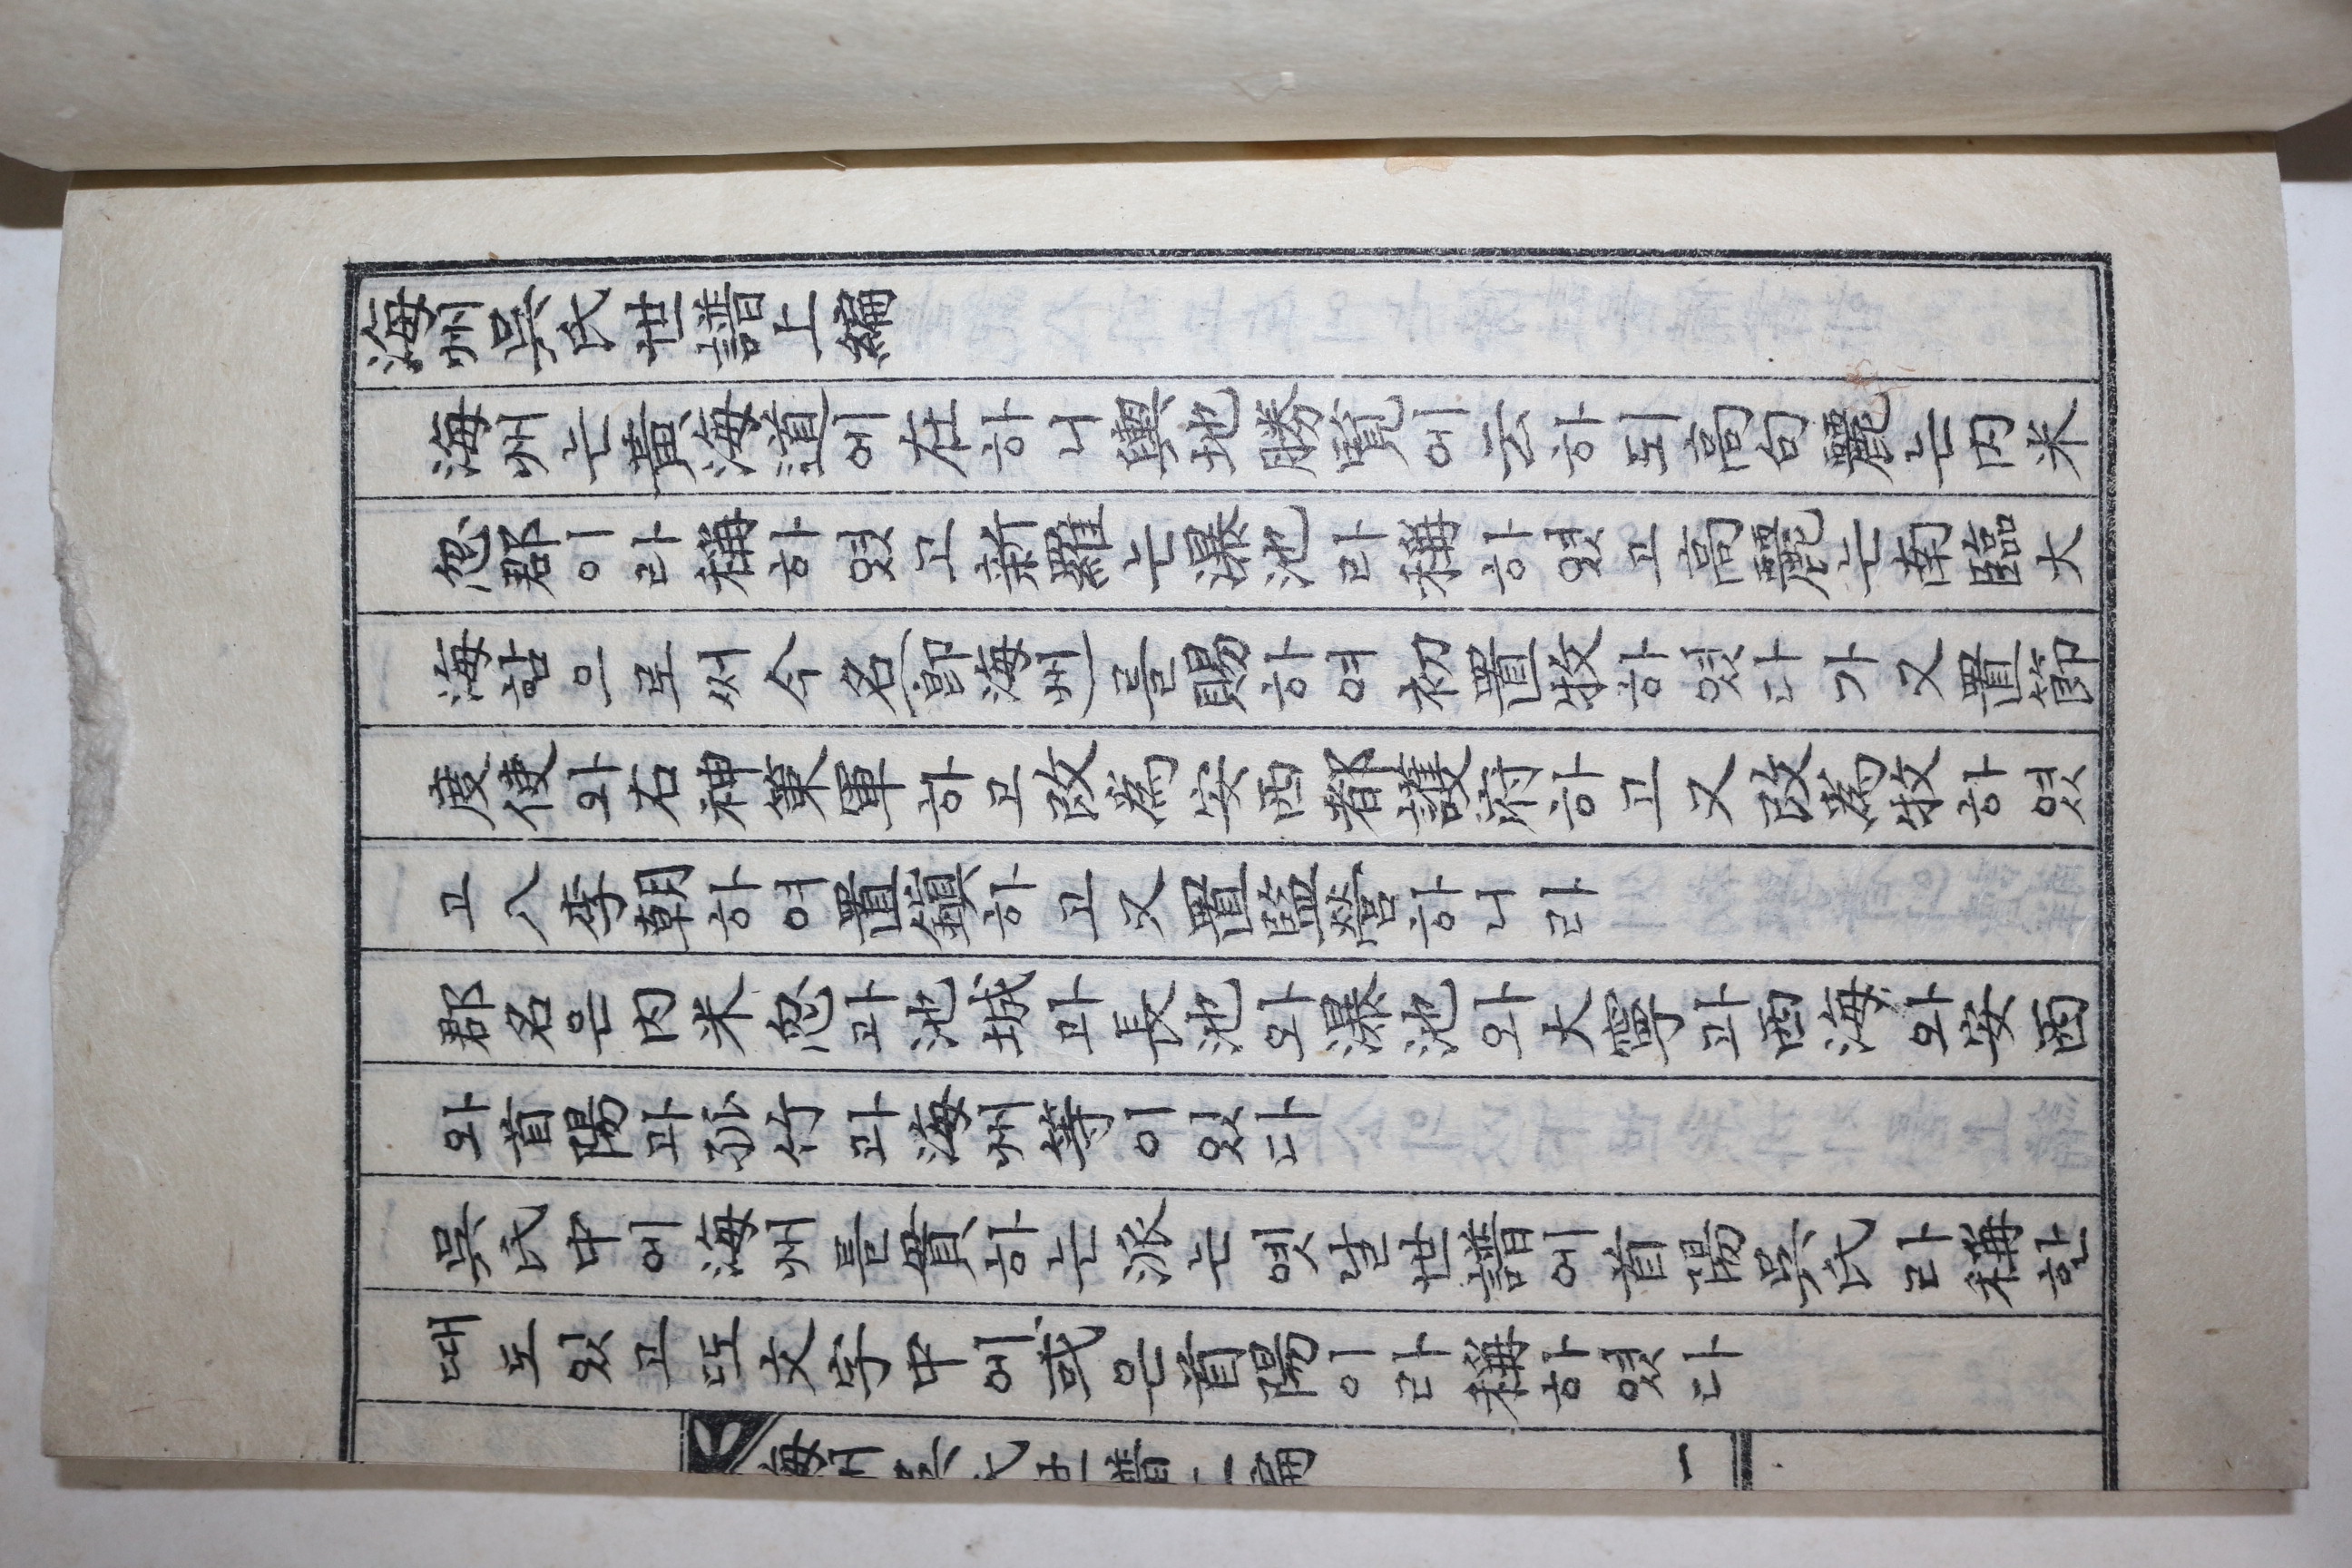 海州吳氏世譜上編
海州는黃海道에在하니輿地勝覽에云하되高句麗는内米
忽郡이라稱하였고新羅는瀑池라稱하였고高麗는南臨大
海함으로써今名(卽海州)를賜하여初置牧하였다가又置節
度使와右神策軍하고改爲安西都護府하고又改爲牧하였
고八李朝하여置鎭하고又置監營하니라
郡名은内米忽과池城과長池와瀑池와大寧과西海와安西
와首陽과孤竹과海州等이있다
吳氏中에海州를貫하는派는옛날世譜에首陽吳氏라稱한
때도있고또文字中에或은首陽이라稱하였다
海州吳氏世譜上編 一